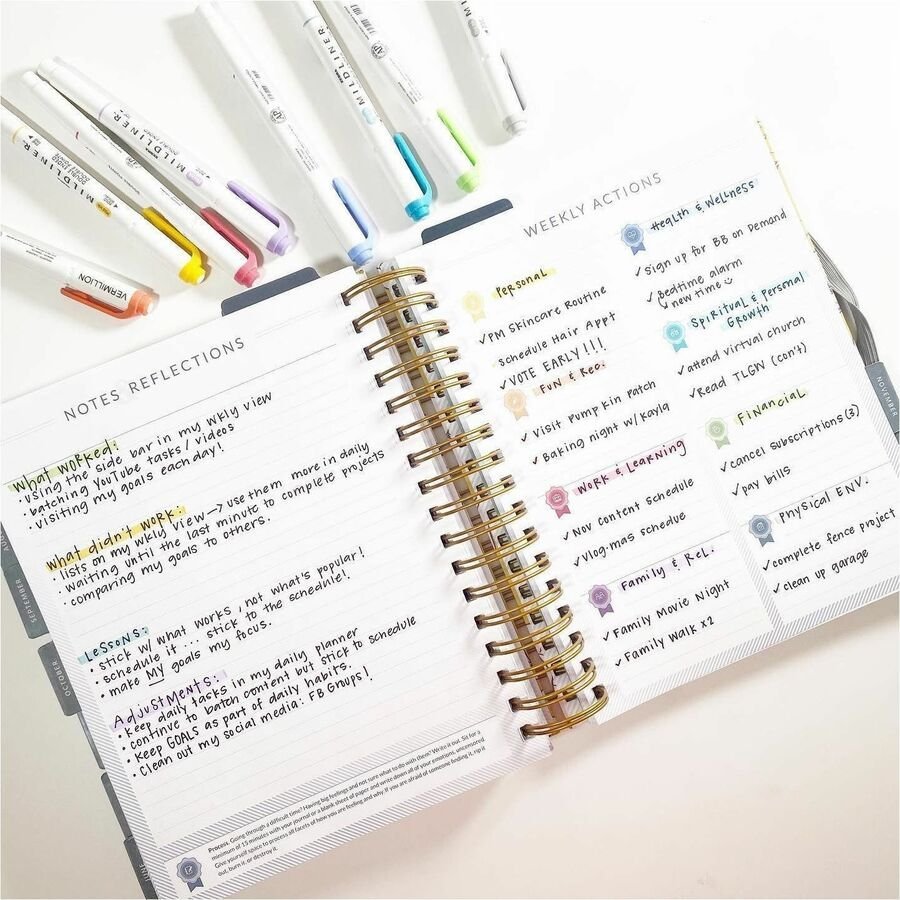 MILDLINER
DOUBLE ENDED
MILDLINER
MILDLINER
VERMILLION
NOTES REFLECTIONS
What worked:
• Using the side bar in my wkly view
• batching YouTube tasks / videos
• visiting my goals each day!
What didn't work:
• lists on my wkly view → use them more in daily
• waiting until the last minute to complete projects
• comparing my goals to others.
Lessons:
• stick w/ what works, not what's popular!
• schedule it ... stick to the schedule!
• make MY goals my focus.
Adjustments:
• Keep daily tasks in my daily planner
• continue to batch content but stick to schedule
• Keep GOALS as part of daily habits.
• Clean out my social media: FB Groups!
Process Going through a difficult time? Having big feelings and not sure what to do with them? Write it out. Sit for a
minimum of 15 minutes with your journal or a blank sheet of paper and write down all of your emotions, uncensored.
Give yourself space to process all facets of how you are feeling and why. If you are afraid of someone finding it, rip it
out, burn it, or destroy it.
SEPTEMBER
OCTOBER
JUNE
WEEKLY ACTIONS
Personal
✓PM Skincare Routine
Schedule Hair Appt
✓VOTE EARLY!!!
Fun & Rec.
✓ Visit Pumpkin Patch
✓ Baking night w/ Kayla
Work & Learning
✓ Nov content schedule
✓ Vlog-mas schedue
Family & Rel.
✓ Family Movie Night
✓ Family Walk x2
Health & Wellness
✓ Sign up for BB on Demand
✓ Bedtime alarm
↳ new time ☺
Spiritual & Personal
Growth
✓ attend virtual church
✓Read TLGW (con't)
Financial
✓cancel subscriptions(3)
✓pay bills
Physical Env.
✓complete fence project
✓ clean up garage
NOVEMBER